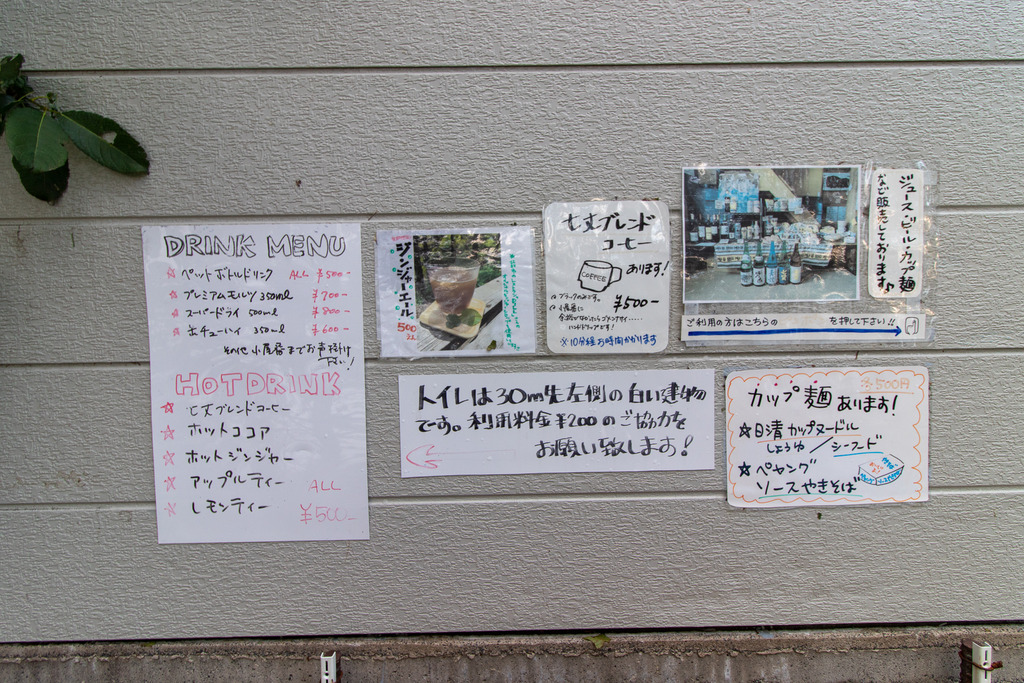 DRINK MENU
☆ ペットボトルドリンク ALL ¥500-
☆ プレミアムモルツ 350ml ¥700-
☆ スーパードライ 500ml ¥800-
☆ 缶チューハイ 350ml ¥600-
その他 小屋番までお声掛け
下さい!
HOTDRINK
☆ 七丈ブレンドコーヒー
☆ ホットココア
☆ ホットジンジャー
☆ アップルティー ALL
☆ レモンティー ¥500-
ジンジャーエール
500
七丈ブレンド
コーヒー
COFFEE
あります!
¥500-
ブラックのみです。
小屋番に
ハンドドリップです!
※10分程お時間かかります
ジュース・ビール・カップ麺
など販売しております♪
ご利用の方はこちらの を押して下さい!!
トイレは30m先左側の白い建物
です。利用料金¥200のご協力を
お願い致します!
☆500円
カップ麺あります!
☆日清カップヌードル
しょうゆ/シーフード
☆ペヤング
ソースやきそば